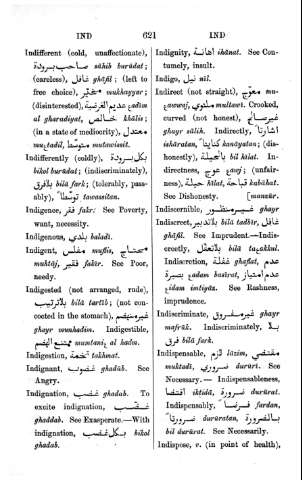 IND 621 IND
Indifferent (cold, unaffectionate),
صاحب برودة ṣāḥib burūdat;
(careless), غافل ghāfil; (left to
free choice), مخيّر mukhayyar;
(disinterested), عديم الغرضية ɛadīm
al gharadiyat, خالص khāliṣ;
(in a state of mediocrity), معتدل
muɛtadil, متوسّط mutawissit.
Indifferently (coldly), بكل برودة
bikol burudat; (indiscriminately),
بلا فرق bilā fark; (tolerably, pass-
ably), توسّطًا tawassitan.
Indigence, فقر fakr. See Poverty,
want, necessity.
Indigenous, بلدي baladī.
Indigent, مفلس muflis, محتاج
muḥtāj, فقير faḳīr. See Poor,
needy.
Indigested (not arranged, rude),
بلا ترتيب bilā tartīb; (not con-
cocted in the stomach), غير منهضم
ghayr munhadim. Indigestible,
ممتنع الهضم mumtaniɛ al hadm.
Indigestion, تخمة tukhmat.
Indignant, غضوب ghadūb. See
Angry.
Indignation, غضب ghadab. To
excite indignation, غضّب
ghaddab. See Exasperate.—With
indignation, بكل غضب bikol
ghadab.
Indignity, اهانة ihānat. See Con-
tumely, insult.
Indigo, نيل nīl.
Indirect (not straight), معوج mu-
ɛawwaj, ملتوي multawī. Crooked,
curved (not honest), غير صالح
ghayr ṣāliḥ. Indirectly, اشارتًا
ishāratan, كنايتًا kanāyatan; (dis-
honestly), بالحيلة bil ḥīlat. In-
directness, عوج ɛawj; (unfair-
ness), حيلة ḥīlat, قباحة ḳabāḥat.
See Dishonesty. [manẓūr.
Indiscernible, غير منظور ghayr
Indiscreet, بلا تدبير bilā tadbīr, غافل
ghāfil. See Imprudent.—Indis-
creetly, بلا تعقّل bilā taɛakkul.
Indiscretion, غفلة ghaflat, عدم
بصيرة ɛadam baṣīrat, عدم امتياز
ɛadam imtiyāz. See Rashness,
imprudence.
Indiscriminate, غير مفروق ghayr
mafrūk. Indiscriminately, بلا
فرق bilā fark.
Indispensable, لازم lāzim, مقتضي
muktadī, ضروري durūrī. See
Necessary.—Indispensableness,
اقتضا iktidā, ضرورة durūrat.
Indispensably, فرضًا fardan,
ضرورتًا durūratan, بالضرورة
bil durūrat. See Necessarily.
Indispose, v. (in point of health),